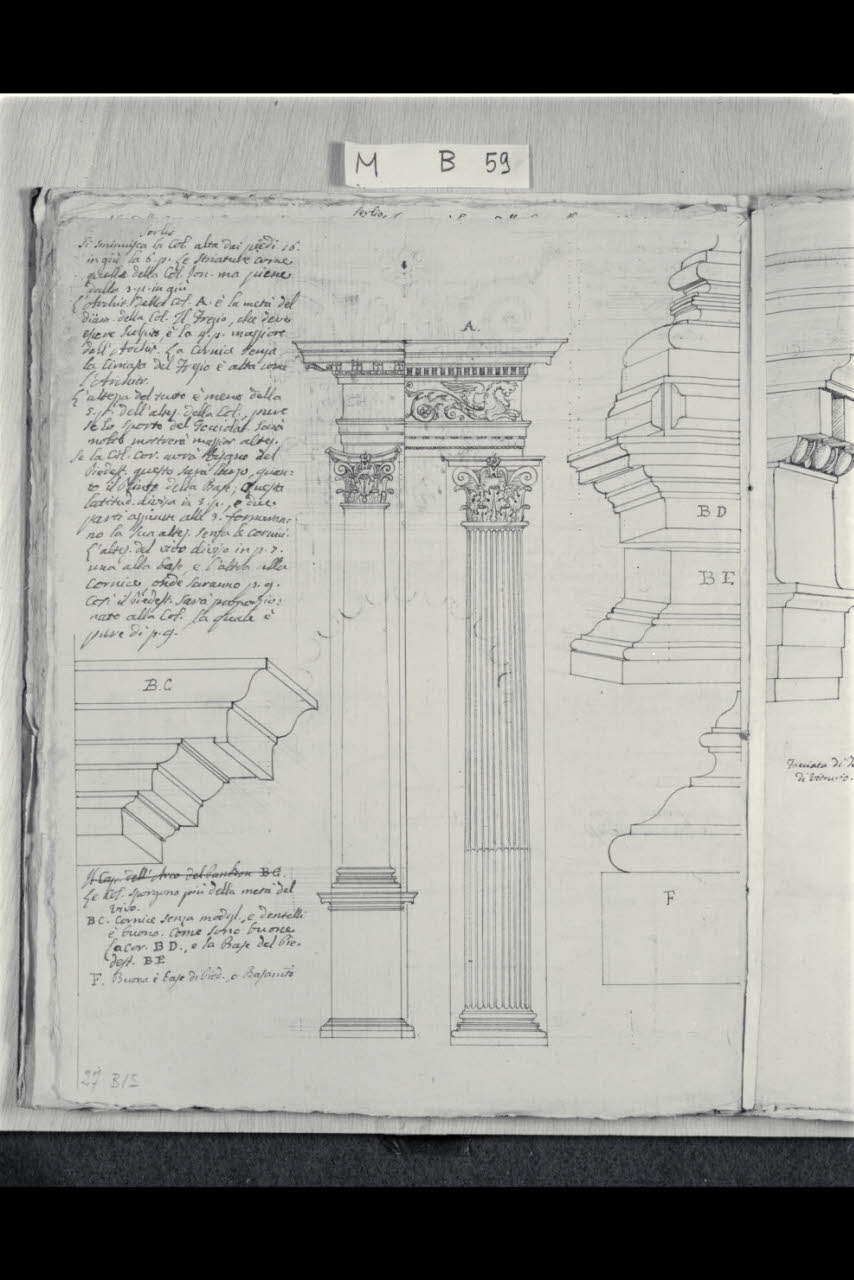 M B 59
Serlio,
Serlio
Si sminuisca la Col. alta dai piedi 16.
in giù la 6. p. Le striature come
quelle della Col. Jon. ma piene
dalla 3. p. in giù
L'Archit. della Col. A. è la metà del
diam. della Col. Il Fregio, che deve
essere sculpito, è la 4. p. maggiore
dell'Archit. La Cornice senza
la Cimasa del Fregio è alta come
l'Archit.
L'altezza del tutto è meno della
5. p. dell'altez. della Col., pure
se lo sporto del Gocciolat. sarà
molto mostrerà maggior altez.
Se la Col. Cor. avrà bisogno del
Piedest. questo sarà largo, quan-
to il Plinto della Base; Questa
latitud. divisa in 3. p., e due
parti aggiunte alle 3. formeran-
no la sua altez. senza le cornici.
L'altez. del vivo diviso in p. 7.
una alla base, e l'altra alla
Cornice, onde saranno p. 9.
Così il Piedest. sarà proporzio:
nato alla Col. la quale è
pure di p. 9.
A.
B D
B E
B.C
F
Facciata di
di Vitruvio.
Il Cap. dell'Arco del Panteon B C.
Le Col. sporgono più della metà del
vivo.
B C. Cornice senza modigl., e dentelli
è buona. Come sono buone
la cor. B D., e la Base del Pie-
dest. B E
F. Buona è base di Pied., o Basamto
27 BIS